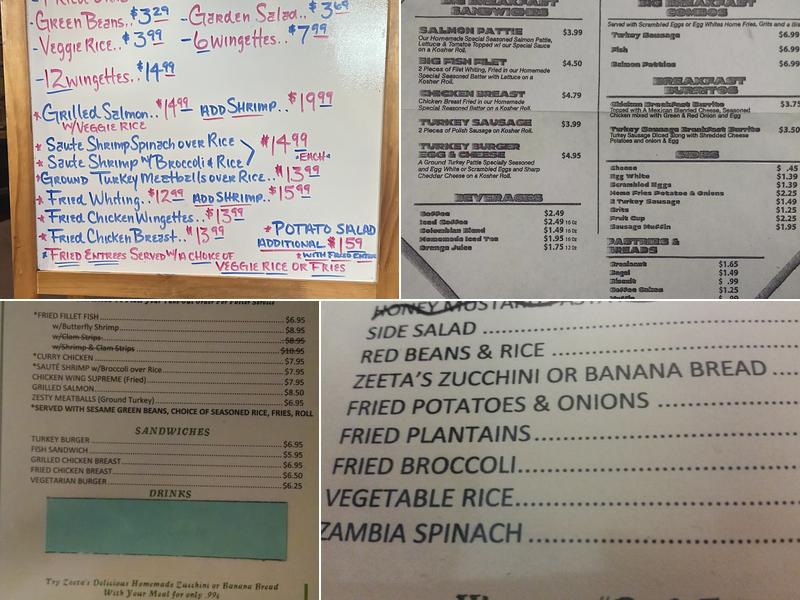 Green Beans.. $3.29
- Garden Salad.. $3.69
- Veggie Rice.. $3.99
- 6 Wingettes.. $7.99
- 12 Wingettes.. $14.99
* Grilled Salmon.. $14.99 Add Shrimp.. $19.99
w/ Veggie Rice
* Saute Shrimp Spinach over Rice
* Saute Shrimp w/ Broccoli & Rice
$14.99
"Each"
* Ground Turkey Meatballs over Rice. $13.99
* Fried Whiting.. $12.99 Add Shrimp.. $15.99
* Fried Chicken Wingettes.. $13.99
* Fried Chicken Breast.. $13.99
* Potato Salad
Additional $1.59
* with Fried Entree
* Fried Entrees Served w/ a choice of
Veggie Rice or Fries
BIG BREAKFAST
SANDWICHES
SALMON PATTIE $3.99
Our Homemade Special Seasoned Salmon Pattie,
Lettuce & Tomatoe Topped w/ our Special Sauce
on a Kosher Roll.
BIG FISH FILET $4.50
2 Pieces of Filet Whiting, Fried in our Homemade
Special Seasoned Batter with Lettuce on a
Kosher Roll.
CHICKEN BREAST $4.79
Chicken Breast Fried in our Homemade
Special Seasoned Batter on a Kosher Roll.
TURKEY SAUSAGE $3.99
2 Pieces of Polish Sausage on Kosher Roll.
TURKEY BURGER
EGG & CHEESE $4.95
A Ground Turkey Pattie Specially Seasoned
and Egg White or Scrambled Eggs and Sharp
Cheddar Cheese on a Kosher Roll.
BEVERAGES
Coffee $2.49
Iced Coffee $2.49 16 Oz
Colombian Blend $1.49 16 Oz
Homemade Iced Tea $1.95 16 Oz
Orange Juice $1.75 12 Oz
BIG BREAKFAST
COMBOS
Served with Scrambled Eggs or Egg Whites Home Fries, Grits and a
Turkey Sausage $6.99
Fish $6.99
Salmon Patties $6.99
BREAKFAST
BURRITOS
Chicken Breakfast Burrito $3.75
Topped with A Mexican Blended Cheese, Seasoned
Chicken mixed with Green & Red Onion and Egg
Turkey Sausage Breakfast Burrito $3.50
Turkey Sausage Diced along with Shredded Cheese
Potatoes and onion & Egg
SIDES
Cheese $ .45
Egg White $1.39
Scrambled Eggs $1.39
Home Fries Potatoe & Onions $2.25
2 Turkey Sausage $1.49
Grits $1.25
Fruit Cup $2.25
Sausage Muffin $1.95
PASTRIES &
BREADS
Croissant $1.65
Bagel $1.49
Biscuit $ .99
Coffee Cakes $1.25
Muffin $ .99
*FRIED FILLET FISH $6.95
w/Butterfly Shrimp $8.95
w/Clam Strips $8.95
w/Shrimp & Clam Strips $10.95
*CURRY CHICKEN $7.95
*SAUTÉ SHRIMP w/Broccoli over Rice $7.95
CHICKEN WING SUPREME (Fried) $7.95
GRILLED SALMON $8.50
ZESTY MEATBALLS (Ground Turkey) $6.95
*SERVED WITH SESAME GREEN BEANS, CHOICE OF SEASONED RICE, FRIES, ROLL
SANDWICHES
TURKEY BURGER $6.95
FISH SANDWICH $5.95
GRILLED CHICKEN BREAST $6.95
FRIED CHICKEN BREAST $6.50
VEGETARIAN BURGER $6.25
DRINKS
Try Zeeta's Delicious Homemade Zucchini or Banana Bread
With Your Meal for only .99¢
HONEY MUSTARD
SIDE SALAD
RED BEANS & RICE
ZEETA'S ZUCCHINI OR BANANA BREAD
FRIED POTATOES & ONIONS
FRIED PLANTAINS
FRIED BROCCOLI
VEGETABLE RICE
ZAMBIA SPINACH